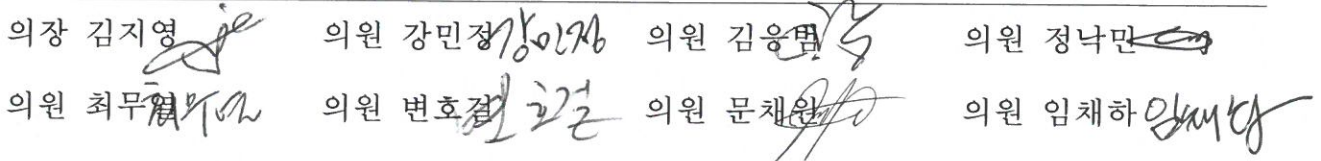 의장 김지영 의원 강민정 강민정 의원 김응범 의원 정낙민
의원 최무열 의원 변호걸 변호걸 의원 문채원 의원 임채하 임채하